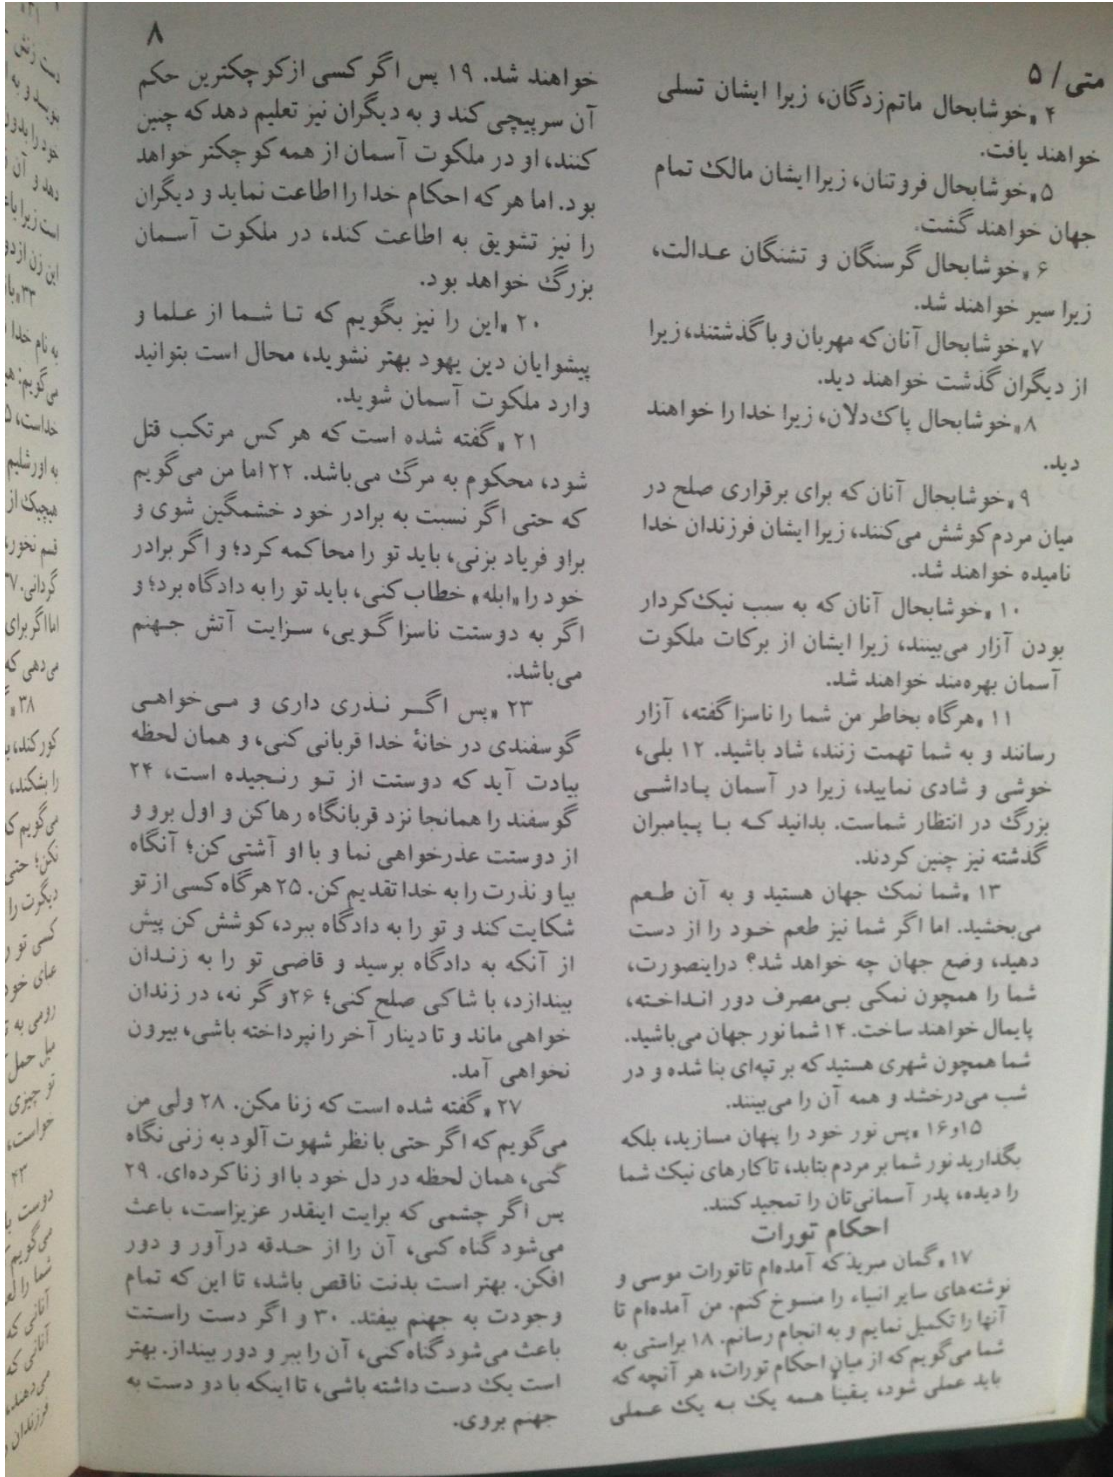 ۸
متی / ۵
۴ «خوشابحال ماتم‌زدگان، زیرا ایشان تسلی
خواهند یافت.
۵ «خوشابحال فروتنان، زیرا ایشان مالک تمام
جهان خواهند گشت.
۶ «خوشابحال گرسنگان و تشنگان عدالت،
زیرا سیر خواهند شد.
۷ «خوشابحال آنان که مهربان و باگذشتند، زیرا
از دیگران گذشت خواهند دید.
۸ «خوشابحال پاک‌دلان، زیرا خدا را خواهند
دید.
۹ «خوشابحال آنان که برای برقراری صلح در
میان مردم کوشش می‌کنند، زیرا ایشان فرزندان خدا
نامیده خواهند شد.
۱۰ «خوشابحال آنان که به سبب نیک‌کردار
بودن آزار می‌بینند، زیرا ایشان از برکات ملکوت
آسمان بهره‌مند خواهند شد.
۱۱ «هرگاه بخاطر من شما را ناسزا گفته، آزار
رسانند و به شما تهمت زنند، شاد باشید. ۱۲ بلی،
خوشی و شادی نمایید، زیرا در آسمان پاداشی
بزرگ در انتظار شماست. بدانید که با پیامبران
گذشته نیز چنین کردند.
۱۳ «شما نمک جهان هستید و به آن طعم
می‌بخشید. اما اگر شما نیز طعم خود را از دست
دهید، وضع جهان چه خواهد شد؟ دراینصورت،
شما را همچون نمکی بی‌مصرف دور انداخته،
پایمال خواهند ساخت. ۱۴ شما نور جهان می‌باشید.
شما همچون شهری هستید که بر تپه‌ای بنا شده و در
شب می‌درخشد و همه آن را می‌بینند.
۱۵و۱۶ «پس نور خود را پنهان مسازید، بلکه
بگذارید نور شما بر مردم بتابد، تا کارهای نیک شما
را دیده، پدر آسمانی‌تان را تمجید کنند.
احکام تورات
۱۷ «گمان مبرید که آمده‌ام تا تورات موسی و
نوشته‌های سایر انبیاء را منسوخ کنم. من آمده‌ام تا
آنها را تکمیل نمایم و به انجام رسانم. ۱۸ براستی به
شما می‌گویم که از میان احکام تورات، هر آنچه که
باید عملی شود، یقیناً همه یک به یک عملی
خواهند شد. ۱۹ پس اگر کسی از کوچکترین حکم
آن سرپیچی کند و به دیگران نیز تعلیم دهد که چنین
کنند، او در ملکوت آسمان از همه کوچکتر خواهد
بود. اما هر که احکام خدا را اطاعت نماید و دیگران
را نیز تشویق به اطاعت کند، در ملکوت آسمان
بزرگ خواهد بود.
۲۰ «این را نیز بگویم که تا شما از علما و
پیشوایان دین یهود بهتر نشوید، محال است بتوانید
وارد ملکوت آسمان شوید.
۲۱ «گفته شده است که هر کس مرتکب قتل
شود، محکوم به مرگ می‌باشد. ۲۲ اما من می‌گویم
که حتی اگر نسبت به برادر خود خشمگین شوی و
براو فریاد بزنی، باید تو را محاکمه کرد؛ و اگر برادر
خود را «ابله» خطاب کنی، باید تو را به دادگاه برد؛ و
اگر به دوستت ناسزا گویی، سزایت آتش جهنم
می‌باشد.
۲۳ «پس اگر نذری داری و می‌خواهی
گوسفندی در خانهٔ خدا قربانی کنی، و همان لحظه
بیادت آید که دوستت از تو رنجیده است، ۲۴
گوسفند را همانجا نزد قربانگاه رها کن و اول برو و
از دوستت عذرخواهی نما و با او آشتی کن؛ آنگاه
بیا و نذرت را به خدا تقدیم کن. ۲۵ هرگاه کسی از تو
شکایت کند و تو را به دادگاه ببرد، کوشش کن پیش
از آنکه به دادگاه برسید و قاضی تو را به زندان
بیندازد، با شاکی صلح کنی؛ ۲۶ و گر نه، در زندان
خواهی ماند و تا دینار آخر را نپرداخته باشی، بیرون
نخواهی آمد.
۲۷ «گفته شده است که زنا مکن. ۲۸ ولی من
می‌گویم که اگر حتی با نظر شهوت آلود به زنی نگاه
کنی، همان لحظه در دل خود با او زنا کرده‌ای. ۲۹
پس اگر چشمی که برایت اینقدر عزیزاست، باعث
می‌شود گناه کنی، آن را از حدقه درآور و دور
افکن. بهتر است بدنت ناقص باشد، تا این که تمام
وجودت به جهنم بیفتد. ۳۰ و اگر دست راستت
باعث می‌شود گناه کنی، آن را ببر و دور بینداز. بهتر
است یک دست داشته باشی، تا اینکه با دو دست به
جهنم بروی.